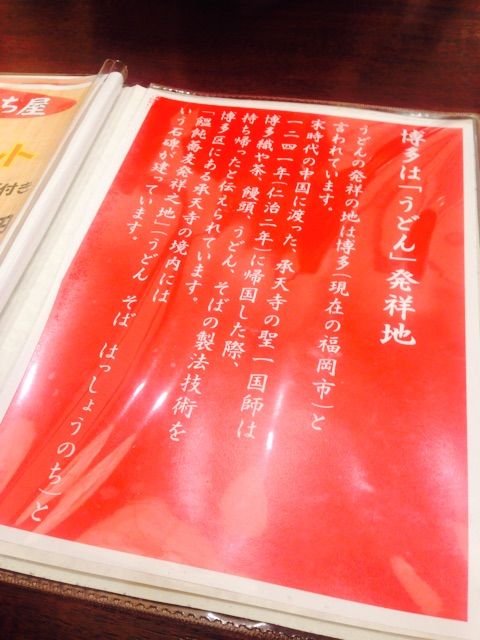 博多は「うどん」発祥地
うどんの発祥の地は博多(現在の福岡市)と
言われています。
宋時代の中国に渡った、承天寺の聖一国師は
一二四一年(仁治二年)に帰国した際、
博多織や茶、饅頭、うどん、そばの製法技術を
持ち帰ったと伝えられています。
博多区にある承天寺の境内には
「饂飩蕎麦発祥之地」(うどん そば はっしょうのち)と
いう石碑が建っています。
ち屋
ット
付き